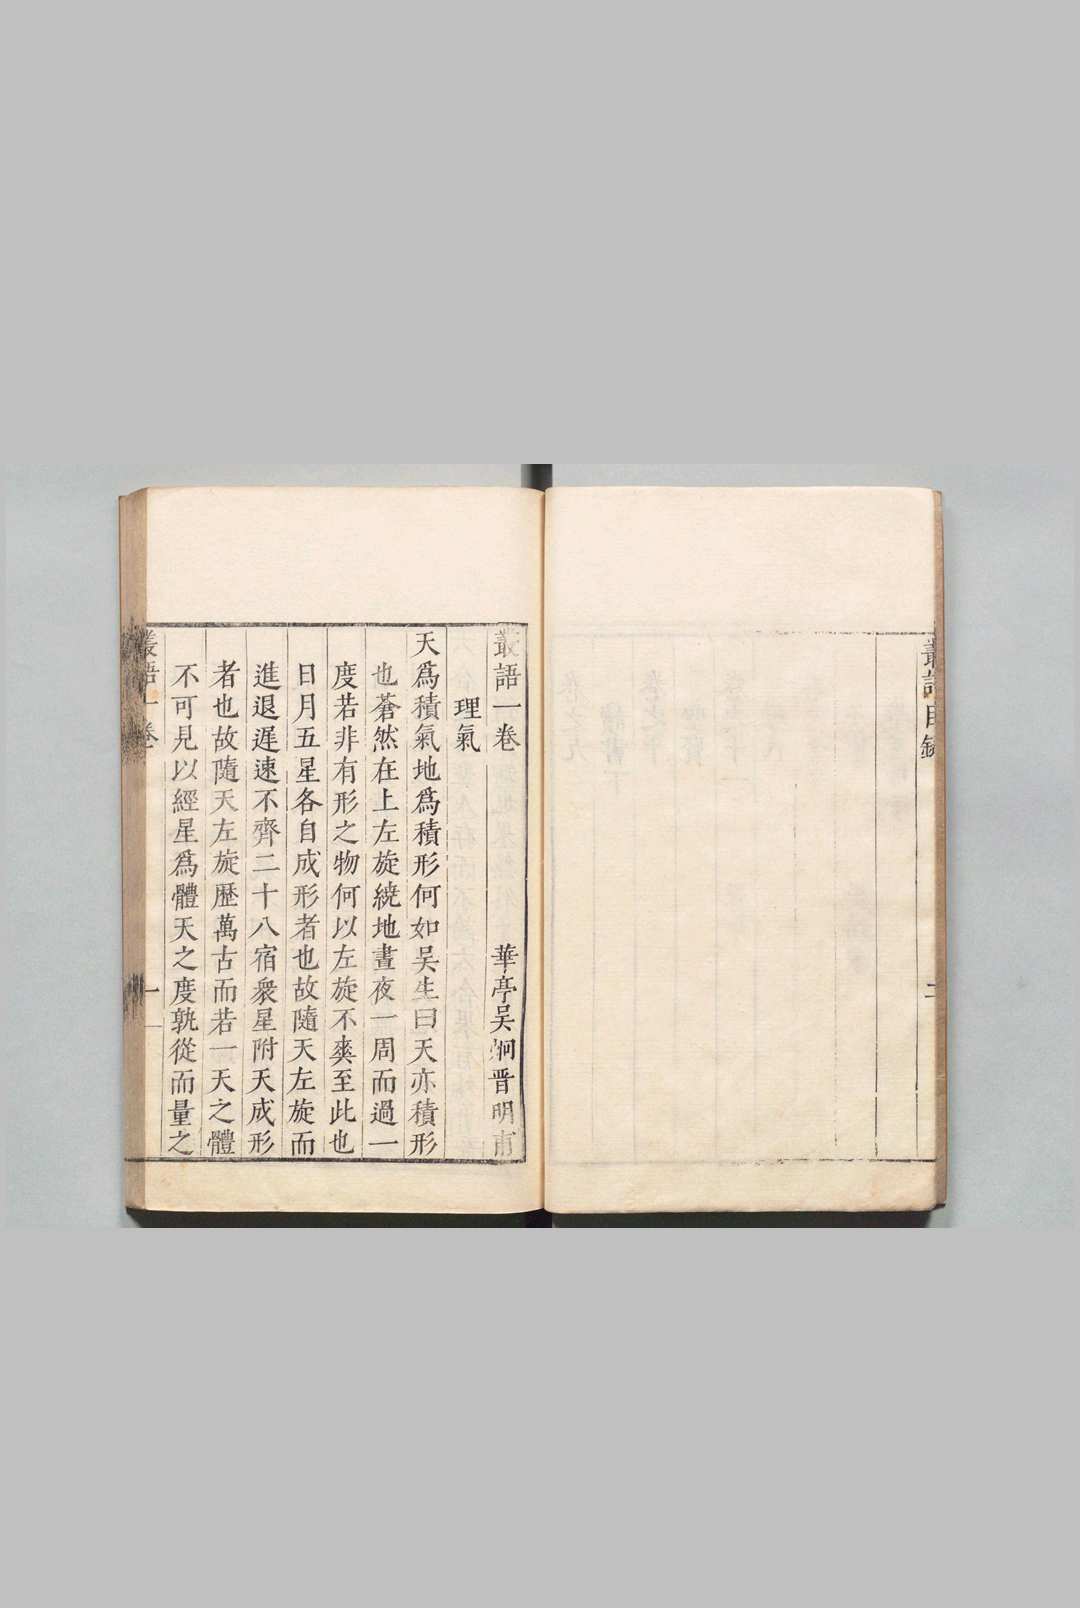 叢語目錄
二
叢語一卷
華亭吳炯晋明甫
理氣
天爲積氣地爲積形何如吴生曰天亦積形
也蒼然在上左旋繞地晝夜一周而過一
度若非有形之物何以左旋不爽至此也
日月五星各自成形者也故隨天左旋而
進退遲速不齊二十八宿衆星附天成形
者也故隨天左旋歷萬古而若一天之體
不可見以經星爲體天之度孰從而量之
叢語一卷
一